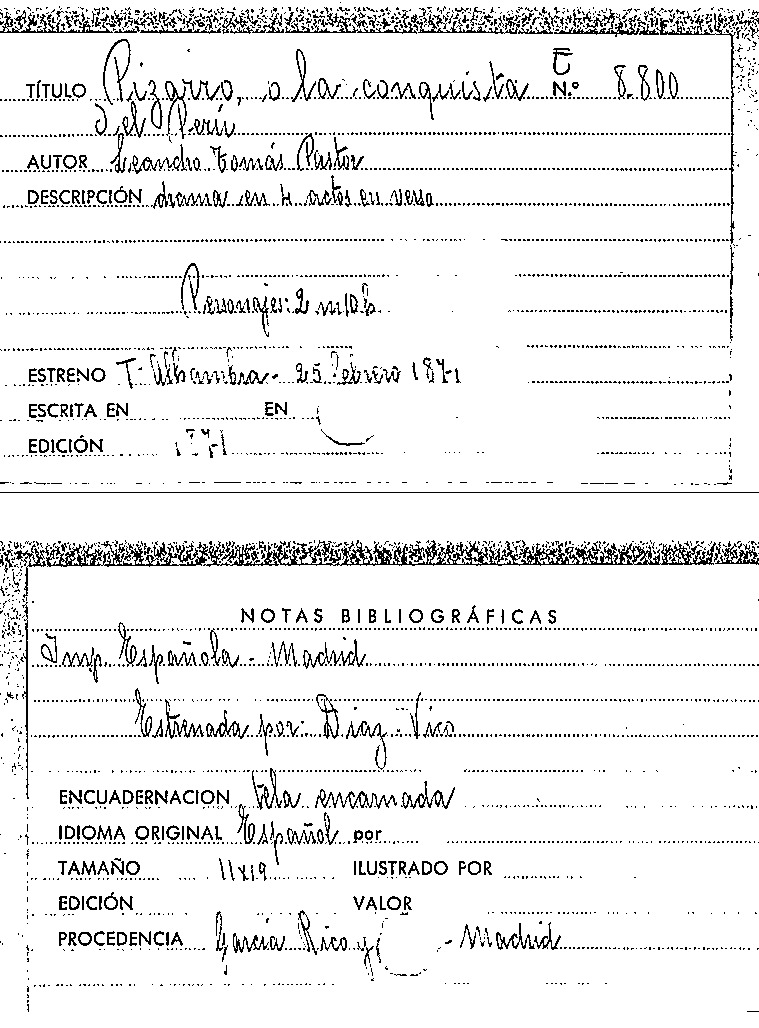 TÍTULO Pizarro, o la conquista N.º 8.800
del Perú
AUTOR Leandro Tomás Pastor
DESCRIPCIÓN drama en 4 actos en verso
Personajes: 2 m 10 h
ESTRENO T. Alhambra - 25 Febrero 1871
ESCRITA EN EN
EDICIÓN 1871
NOTAS BIBLIOGRÁFICAS
Imp. Española - Madrid
Estrenada por: Diaz - Vico
ENCUADERNACION tela encarnada
IDIOMA ORIGINAL Español por
TAMAÑO 11x19 ILUSTRADO POR
EDICIÓN VALOR
PROCEDENCIA García Rico y - Madrid